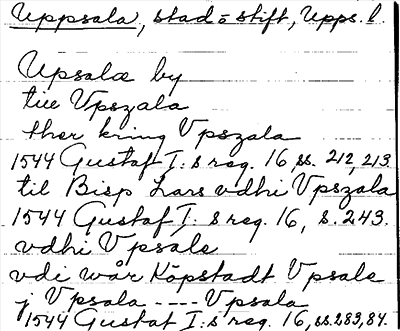 Uppsala, stad = stift, Upps. l.
Upsalæ by
till Vpszala
ther kring Vpszala
1544 Gustaf I:s reg. 16, ss. 212, 213.
til Bisp Lars vdhi Vpszala
1544 Gustaf I:s reg. 16, s. 243.
vdhi Vpsale
vdi wår Köpstadt Vpsale
j Vpsala ---- Vpsala
1544 Gustaf I:s reg. 16, ss. 383, 84.